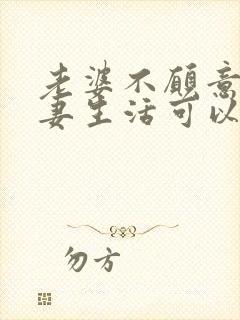 老婆不愿意
妻生活可以
勿方